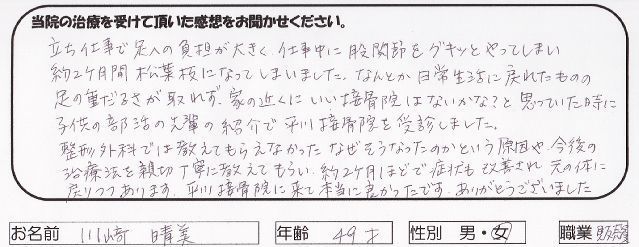 当院の治療を受けて頂いた感想をお聞かせください。
立ち仕事で足への負担が大きく、仕事中に股関節をグキッとやってしまい
約2ヶ月間松葉杖になってしまいました。なんとか日常生活に戻れたものの
足の重だるさが取れず、家の近くにいい接骨院はないかな?と思っていた時に
子供の部活の先輩の紹介で平川接骨院を受診しました。
整形外科では教えてもらえなかったなぜそうなったのかという原因や、今後の
治療法を親切丁寧に教えてもらい、約2ヶ月ほどで症状も改善され元の体に
戻りつつあります。平川接骨院に来て本当に良かったです。ありがとうございました
お名前 川﨑 晴美 年齢 49才 性別 男・女 職業 販売員